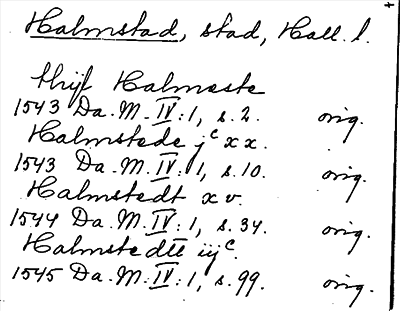 Halmstad, stad, Hall. l.
thijl Halmeste
1543 Da. M. IV:1, s. 2. orig.
Halmstede jᶜ xx.
1543 Da. M. IV:1, s. 10. orig.
Halmstedt xv.
1544 Da. M. IV:1, s. 34. orig.
Halmstedtt iijᶜ.
1545 Da. M. IV:1, s. 99. orig.